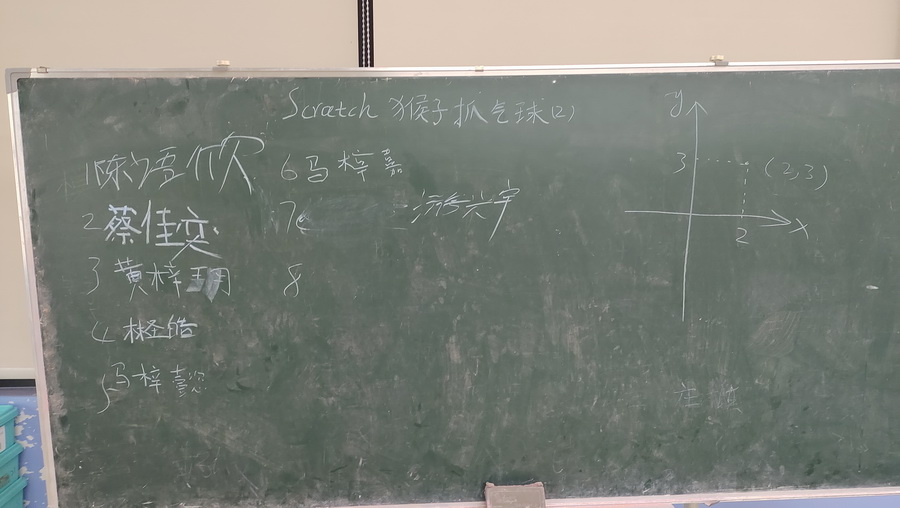 Scratch 猴子抓气球(2)
1陈语欣
2蔡佳奕
3黄梓玥
4 林圣皓
5马梓懿
6马梓嘉
7
8
y
3
(2,3)
2
x